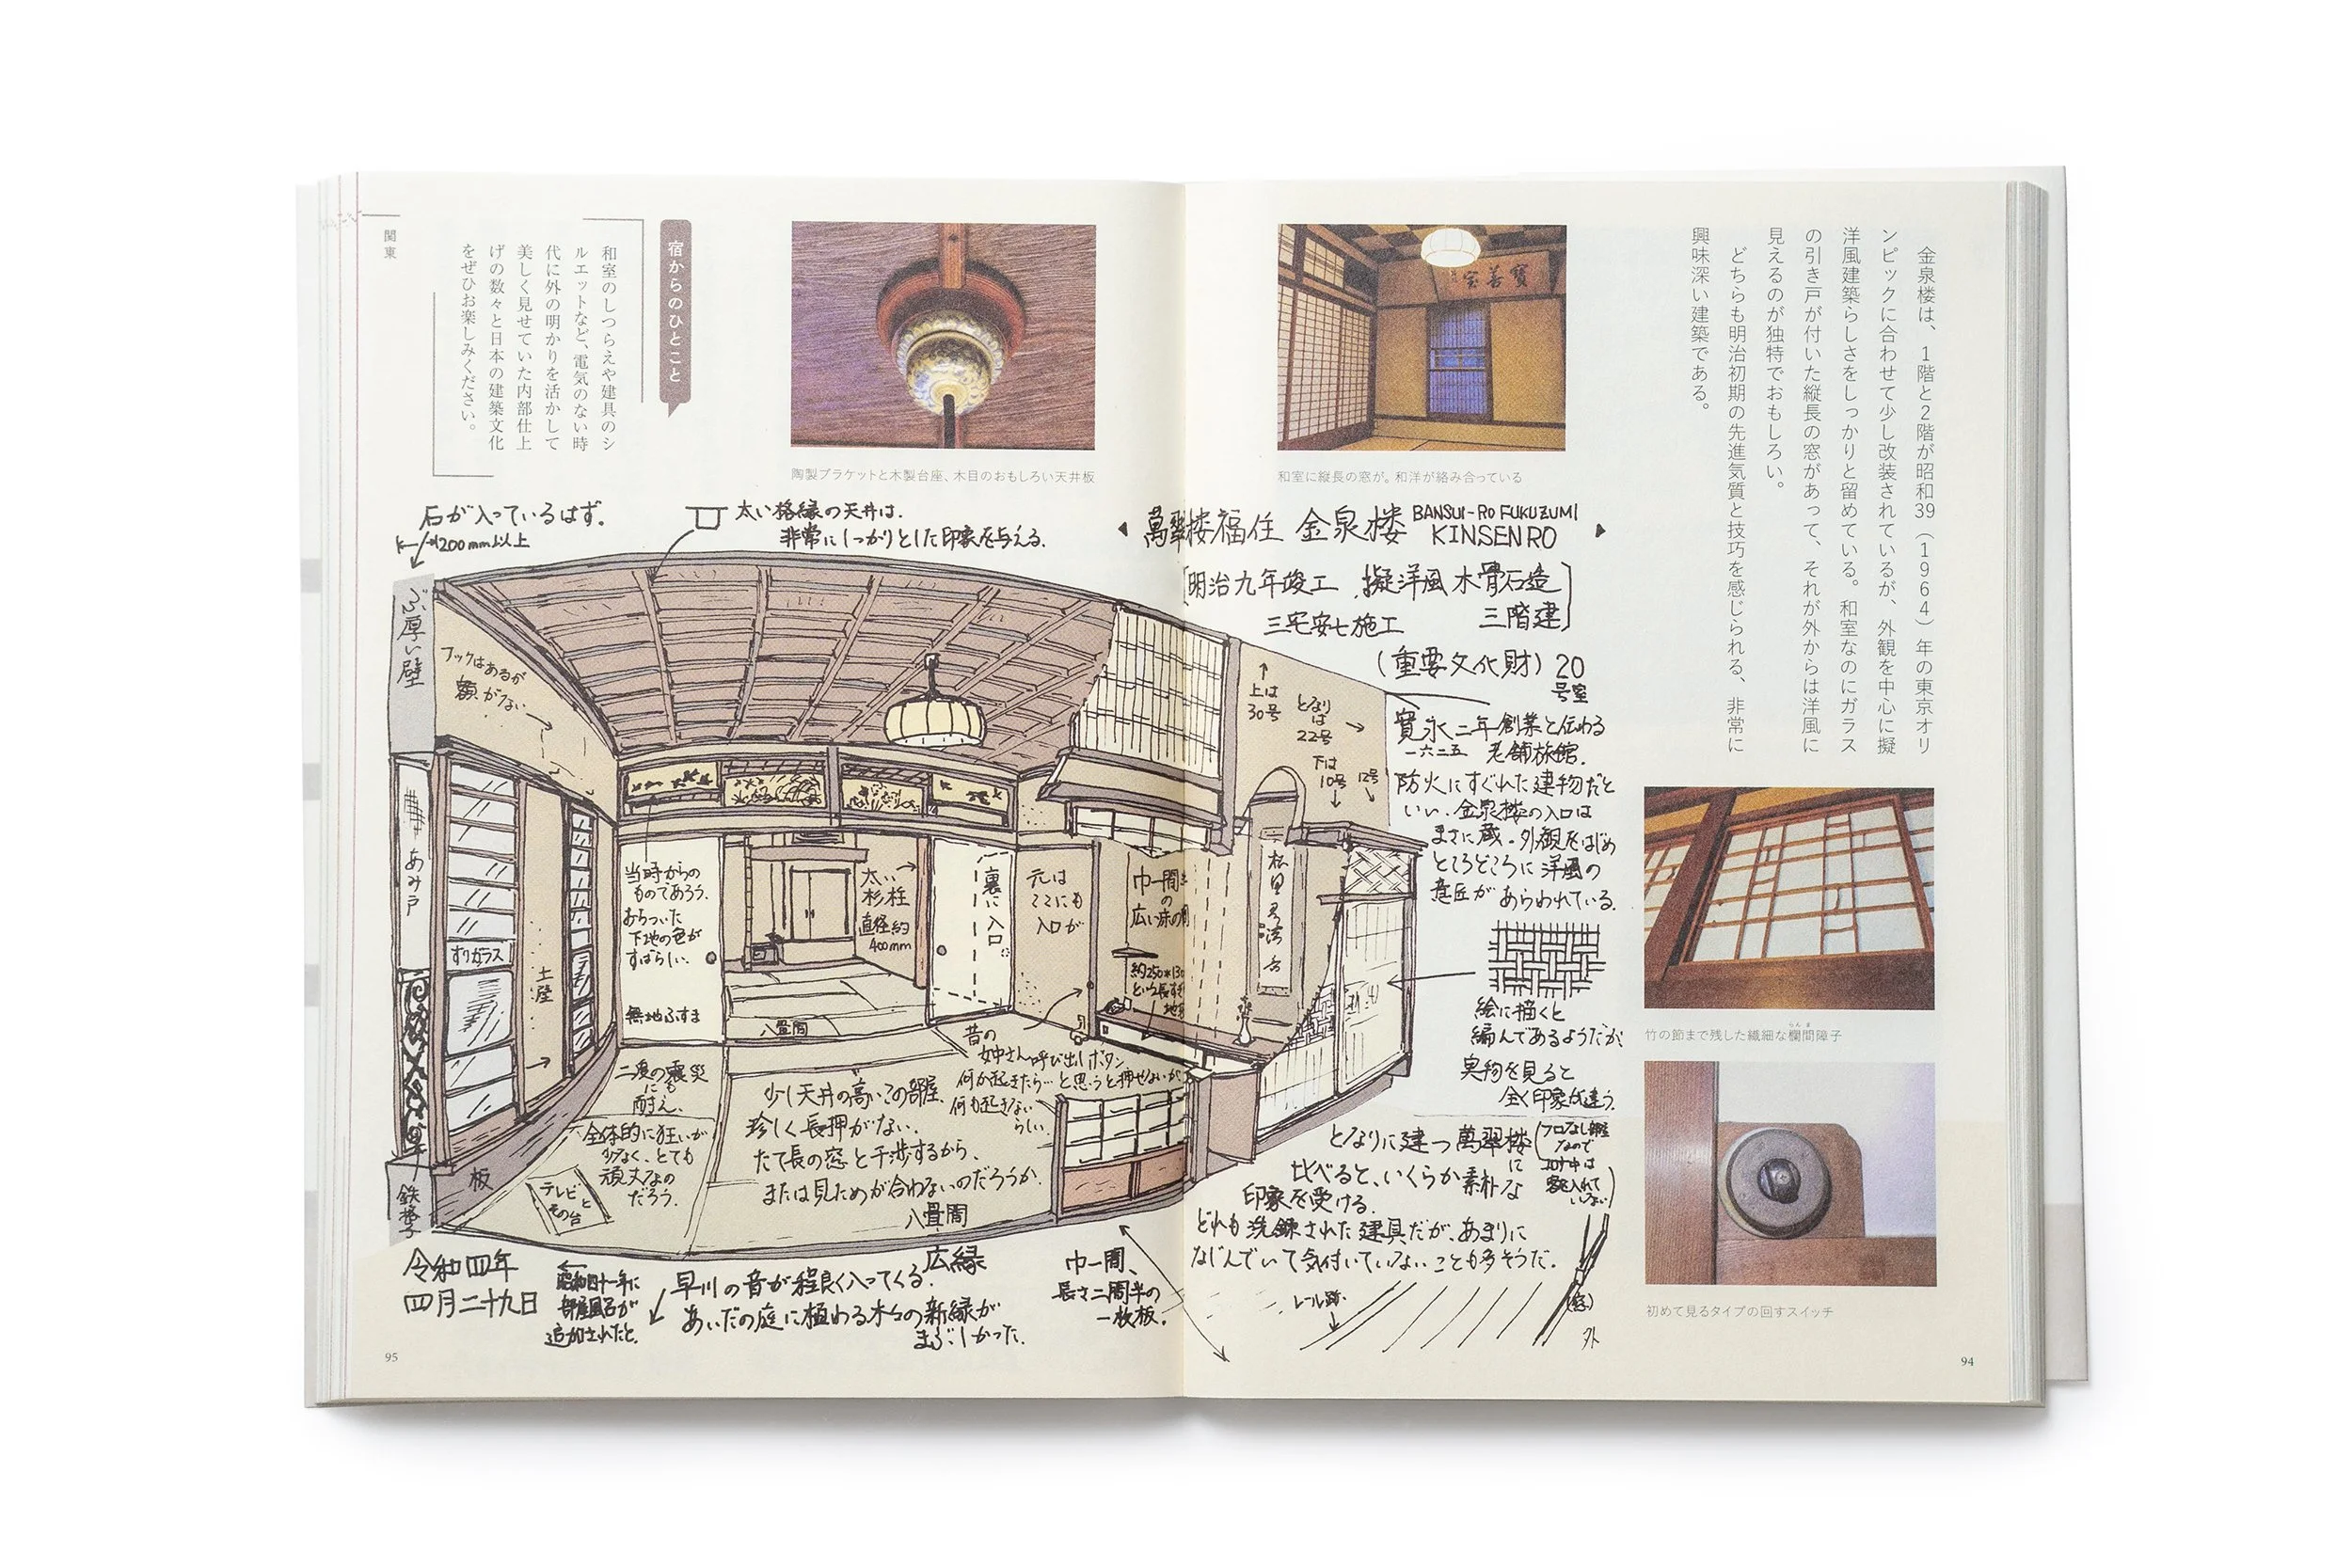 金泉楼は、1階と2階が昭和39（1964）年の東京オリ
ンピックに合わせて少し改装されているが、外観を中心に擬
洋風建築らしさをしっかりと留めている。和室なのにガラス
の引き戸が付いた縦長の窓があって、それが外からは洋風に
見えるのが独特でおもしろい。
どちらも明治初期の先進気質と技巧を感じられる、非常に
興味深い建築である。
寶善宝
和室に縦長の窓が。和洋が絡み合っている
竹の節まで残した繊細な欄間障子
らんま
初めて見るタイプの回すスイッチ
94
萬翠楼福住 金泉楼 BANSUI-RO FUKUZUMI
KINSENRO
[明治九年竣工 擬洋風 木骨石造
三宅安七施工 三階建]
(重要文化財) 20
号室
寛永二年創業と伝わる
一六二五 老舗旅館.
防火にすぐれた建物だと
いい、金泉楼の入口は
まさに蔵。外観をはじめ
ところどころに洋風の
意匠があらわれている.
絵に描くと
編んであるようだが
実物を見ると
全く印象が違う.
となりに建つ萬翠楼に
比べると、いくらか素朴な
印象を受ける.
どれも洗錬された建具だが、あまりに
なじんでいて気付いていないことも多そうだ.
レール跡.
(窓)
外
上は
30号
となり
は
22号
下は
10号
12号
陶製ブラケットと木製台座、木目のおもしろい天井板
宿からのひとこと
和室のしつらえや建具のシ
ルエットなど、電気のない時
代に外の明かりを活かして
美しく見せていた内部仕上
げの数々と日本の建築文化
をぜひお楽しみください。
関東
石が入っているはず.
200mm以上
太い格縁の天井は.
非常にしっかりとした印象を与える.
ぶ厚い壁
フックはあるが
額がない
あみ戸
すりガラス
土壁
鉄格子
板
当時からの
ものであろう.
おちついた
下地の色が
すばらしい.
無地ふすま
太い
杉柱
直径約
400mm
裏に入口
元は
ここにも
入口が
巾一間
の
広い床の間
八畳間
昔の
女中さん呼び出しボタン
何か起きたら…と思うと押せないが
何も起きない
らしい.
二度の震災
にも
耐え、
全体的に狂いが
少なく、とても
頑丈なの
だろう.
テレビと
その台
少し天井の高いこの部屋.
珍しく長押がない.
たて長の窓と干渉するから、
または見ためが合わないのだろうか.
八畳間
広縁
令和四年
四月二十九日
昭和四十一年に
部屋風呂が
追加されたと.
早川の音が程良く入ってくる.
あいだの庭に植わる木々の新緑が
まぶしかった.
巾一間、
長さ二間半の
一枚板.
95